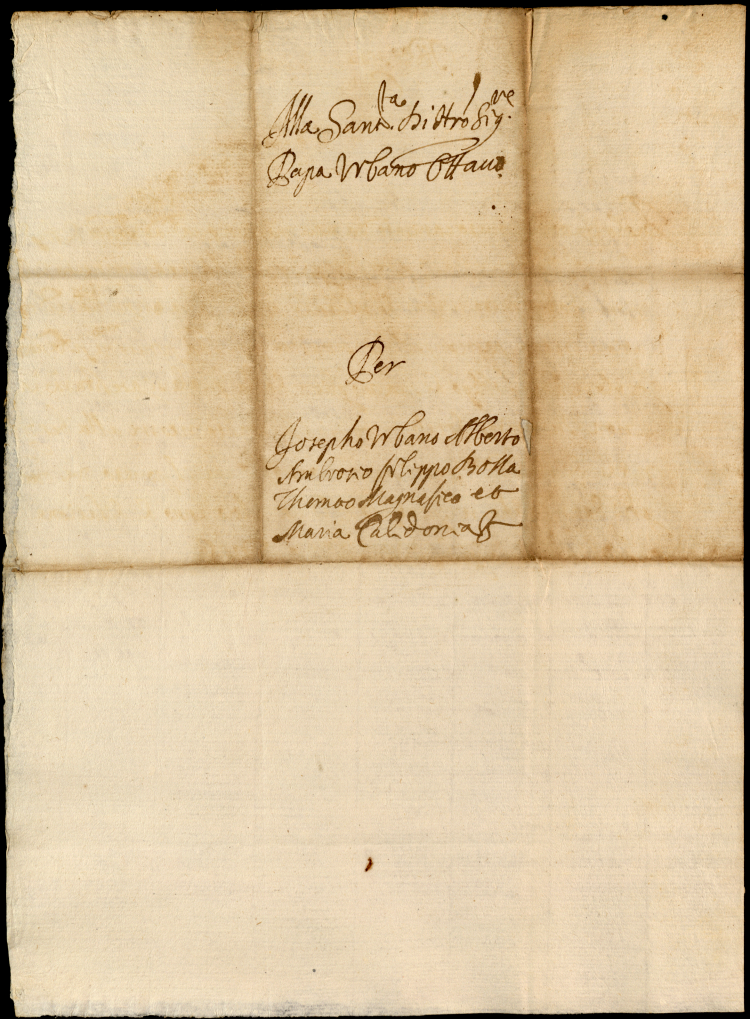 Alla Sant.ta di Nro Sig.re
Papa Urbano Ottavo
Per
Josepho Urbano Alberto
Ambrosio filippo Bossa
Thomaso Magnasico et
Maria Calidonia